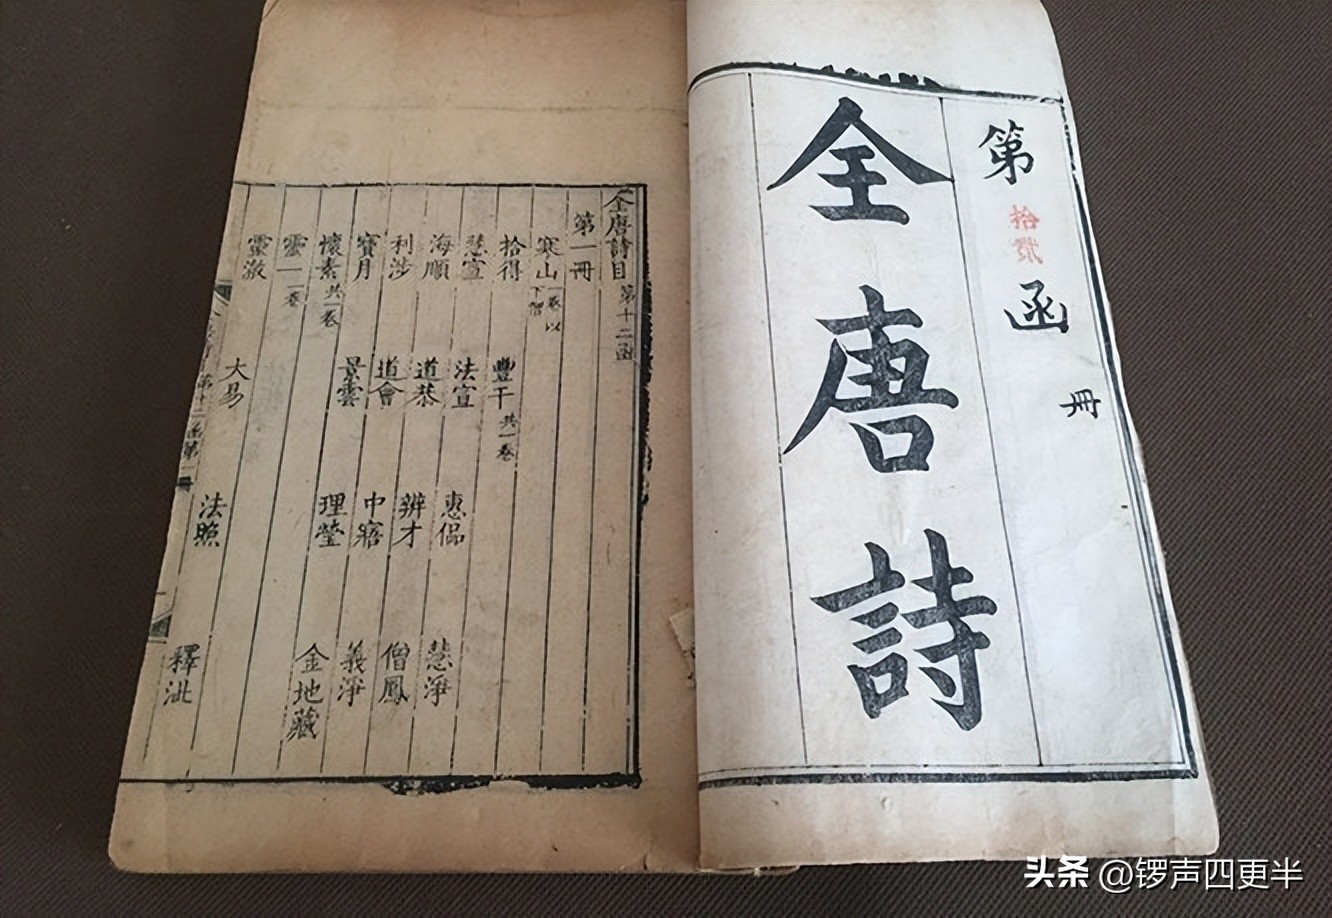 第拾贰函
冊
全唐詩
全唐詩目 第十二函
第一冊
寒山一卷以下僧
拾得 豐干共一卷
慧宣 法宣 惠偘 慧淨
海順 道恭 辨才 僧鳳
利涉 道會 中寤 義淨
寶月 景雲 理瑩 金地藏
懷素共一卷
靈一二卷
靈澈 大易 法照 釋泚
头条 @锣声四更半